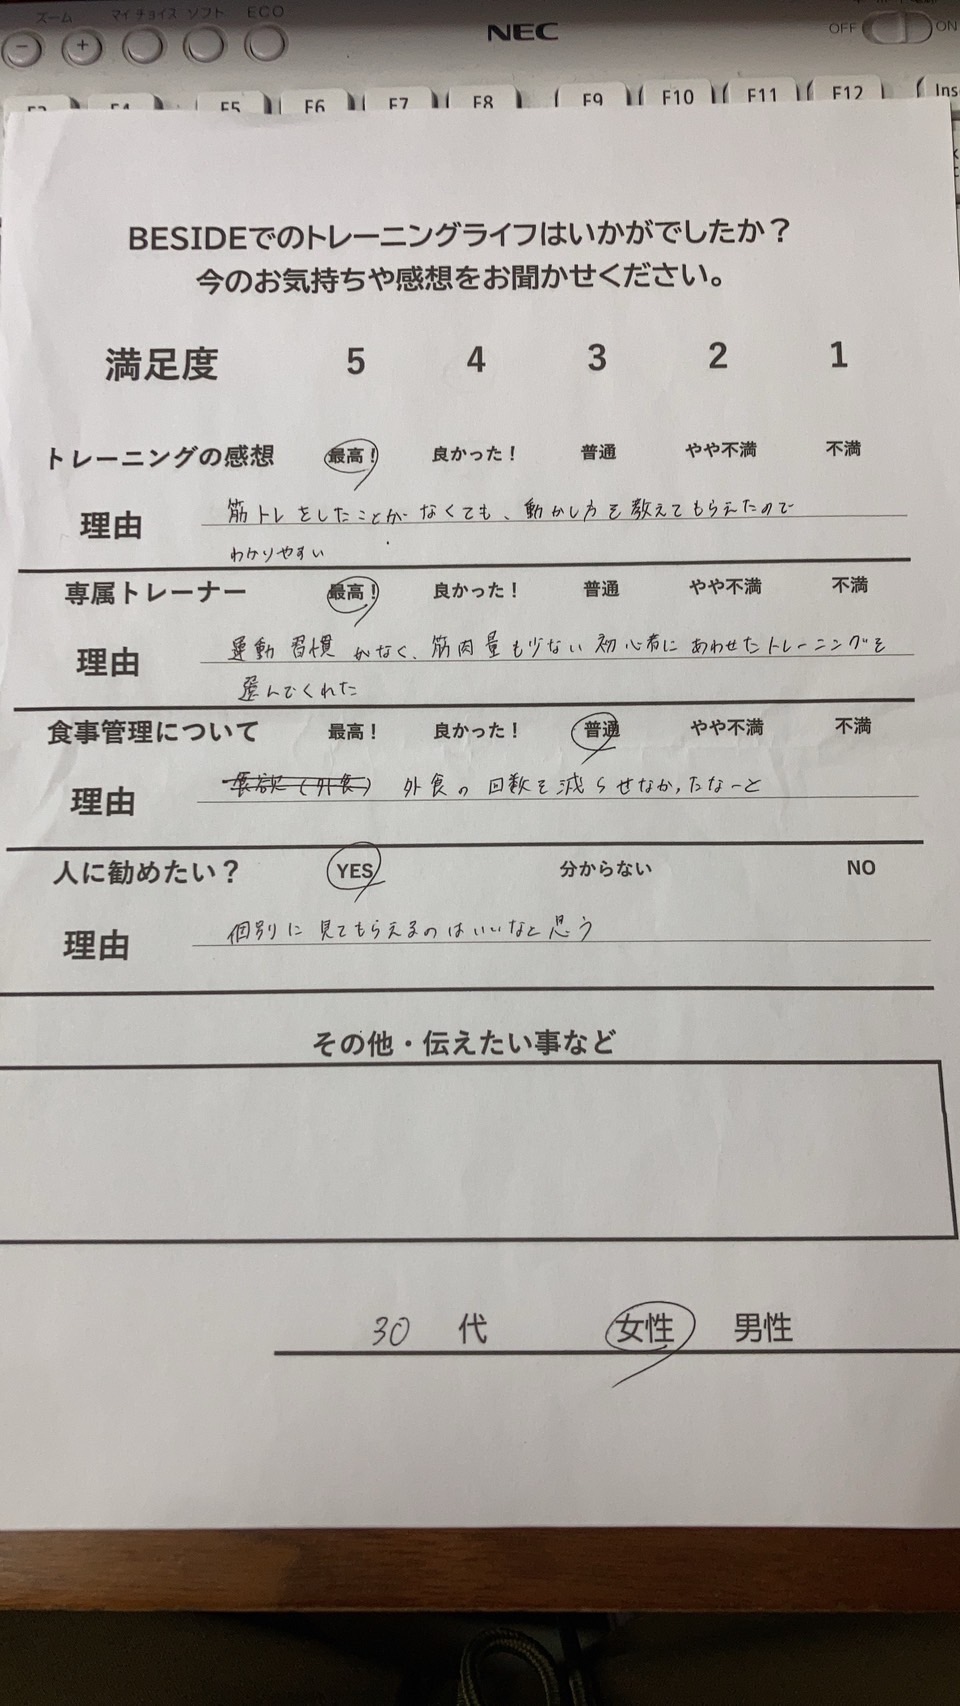 ズーム マイ チョイス ソフト ECO
NEC
OFF ON
F5 F6 F7 F8 F9 F10 F11 F12 Ins
BESIDEでのトレーニングライフはいかがでしたか？
今のお気持ちや感想をお聞かせください。
満足度 5 4 3 2 1
トレーニングの感想 最高！ 良かった！ 普通 やや不満 不満
理由 筋トレをしたことがなくても、動かし方を教えてもらえたので
わかりやすい
専属トレーナー 最高！ 良かった！ 普通 やや不満 不満
理由 運動習慣がなく、筋肉量も少ない初心者にあわせたトレーニングを
選んでくれた
食事管理について 最高！ 良かった！ 普通 やや不満 不満
理由 食欲（外食） 外食の回数を減らせなかったなーと
人に勧めたい？ YES 分からない NO
理由 個別に見てもらえるのはいいなと思う
その他・伝えたい事など
30 代 女性 男性